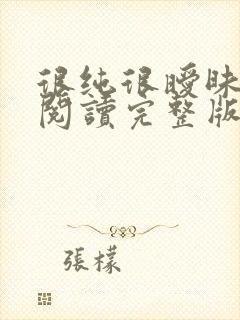 很純很曖昧
閱讀完整版
張檬